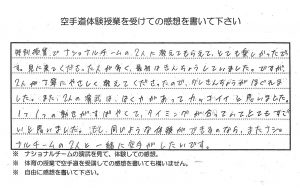 空手道体験授業を受けての感想を書いて下さい
特別授業で ナショナルチームの2人に教えてもらえて、とても楽しかったで
す。見に来てくださった人が多く、最初はきんちょうしていました。ですが、
2人が丁寧にやさしく教えてくださったので、少しきんちょうがほぐれま
した。また、2人の演武は、はく力があってカッコイイと思いました。
1つ1つの動きがすばやくて、タイミングが合っていてとてもすご
いと思いました。もし、同じような体験ができるのなら、またナショ
ナルチームの2人と一緒に空手がしたいです。
※ ナショナルチームの演武を見て、体験しての感想。
※ 体育の授業で空手道を受講しての感想でも構いません。
※ 自由に感想を書いて下さい。